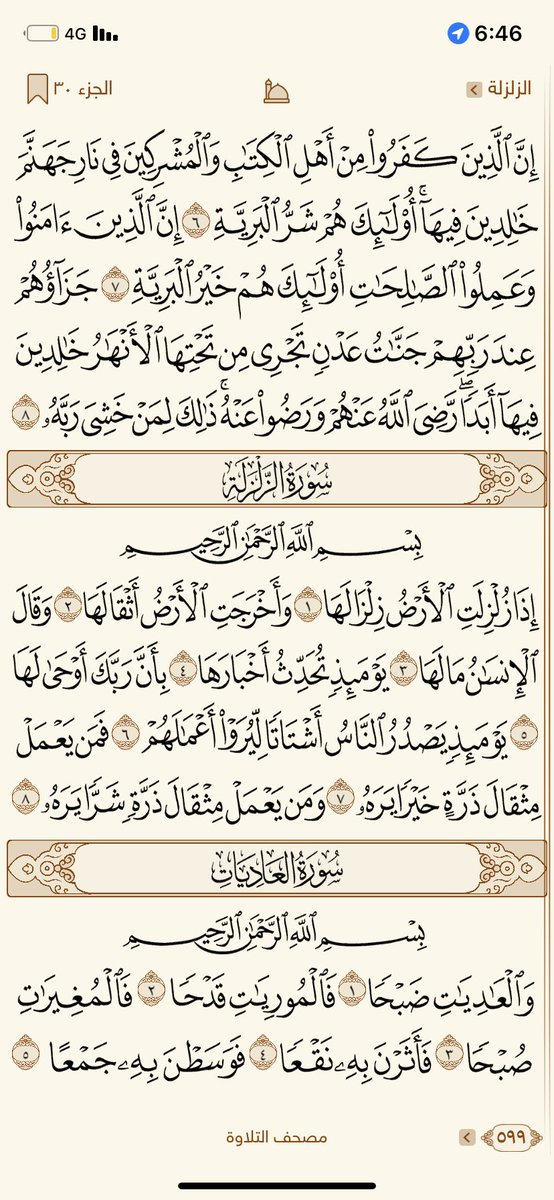 4G 6:46
الزلزلة الجزء ٣٠
إِنَّ ٱلَّذِينَ كَفَرُوا۟ مِنْ أَهْلِ ٱلْكِتَٰبِ وَٱلْمُشْرِكِينَ فِى نَارِ جَهَنَّمَ
خَٰلِدِينَ فِيهَآ ۚ أُو۟لَٰٓئِكَ هُمْ شَرُّ ٱلْبَرِيَّةِ ٦ إِنَّ ٱلَّذِينَ ءَامَنُوا۟
وَعَمِلُوا۟ ٱلصَّٰلِحَٰتِ أُو۟لَٰٓئِكَ هُمْ خَيْرُ ٱلْبَرِيَّةِ ٧ جَزَآؤُهُمْ
عِندَ رَبِّهِمْ جَنَّٰتُ عَدْنٍ تَجْرِى مِن تَحْتِهَا ٱلْأَنْهَٰرُ خَٰلِدِينَ
فِيهَآ أَبَدًا ۖ رَّضِىَ ٱللَّهُ عَنْهُمْ وَرَضُوا۟ عَنْهُ ۚ ذَٰلِكَ لِمَنْ خَشِىَ رَبَّهُۥ ٨
سُورَةُ الزَّلْزَلَةِ
بِسْمِ ٱللَّهِ ٱلرَّحْمَٰنِ ٱلرَّحِيمِ
إِذَا زُلْزِلَتِ ٱلْأَرْضُ زِلْزَالَهَا ١ وَأَخْرَجَتِ ٱلْأَرْضُ أَثْقَالَهَا ٢ وَقَالَ
ٱلْإِنسَٰنُ مَا لَهَا ٣ يَوْمَئِذٍ تُحَدِّثُ أَخْبَارَهَا ٤ بِأَنَّ رَبَّكَ أَوْحَىٰ لَهَا
٥ يَوْمَئِذٍ يَصْدُرُ ٱلنَّاسُ أَشْتَاتًا لِّيُرَوْا۟ أَعْمَٰلَهُمْ ٦ فَمَن يَعْمَلْ
مِثْقَالَ ذَرَّةٍ خَيْرًا يَرَهُۥ ٧ وَمَن يَعْمَلْ مِثْقَالَ ذَرَّةٍ شَرًّا يَرَهُۥ ٨
سُورَةُ العَادِيَاتِ
بِسْمِ ٱللَّهِ ٱلرَّحْمَٰنِ ٱلرَّحِيمِ
وَٱلْعَٰدِيَٰتِ ضَبْحًا ١ فَٱلْمُورِيَٰتِ قَدْحًا ٢ فَٱلْمُغِيرَٰتِ
صُبْحًا ٣ فَأَثَرْنَ بِهِۦ نَقْعًا ٤ فَوَسَطْنَ بِهِۦ جَمْعًا ٥
٥٩٩ مصحف التلاوة